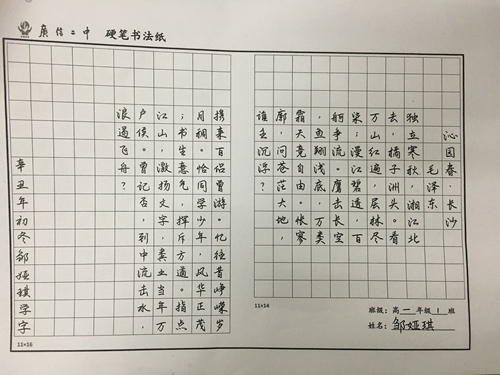 廣信二中 硬笔书法纸
沁园春·长沙
毛泽东
独立寒秋,湘江北
去,橘子洲头。看
万山红遍,层林尽
染;漫江碧透,百
舸争流。鹰击长空
,鱼翔浅底,万类
霜天竞自由。怅寥
廓,问苍茫大地,
谁主沉浮?
携来百侣曾游。忆往昔峥嵘岁
月稠。恰同学少年,风华正茂
;书生意气,挥斥方遒。指点
江山,激扬文字,粪土当年万
户侯。曾记否,到中流击水,
浪遏飞舟?
辛丑年初冬邹娅琪学字
11×14
班级:高一年级1班
姓名:邹娅琪
11×16